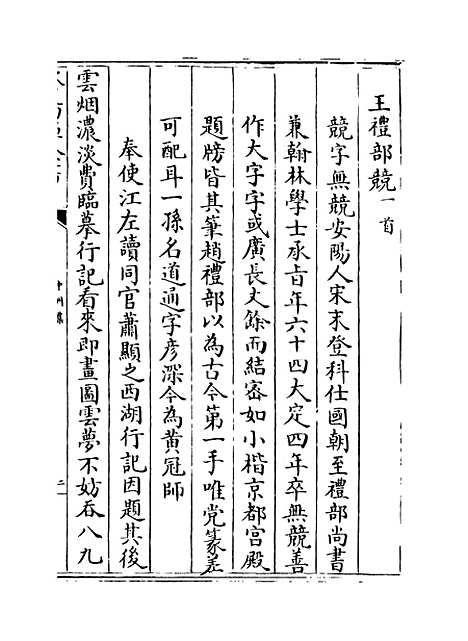 王禮部競一首
競字無競安陽人宋末登科仕國朝至禮部尚書
兼翰林學士承旨年六十四大定四年卒無競善
作大字字或廣長丈餘而結密如小楷京都宮殿
題牓皆其筆趙禮部以為古今第一手唯党篆差
可配耳一孫名道通字彥深今為黃冠師
奉使江左讀同官蕭顯之西湖行記因題其後
雲烟濃淡費臨摹行記看來即畫圖雲夢不妨吞八九
中州集
二